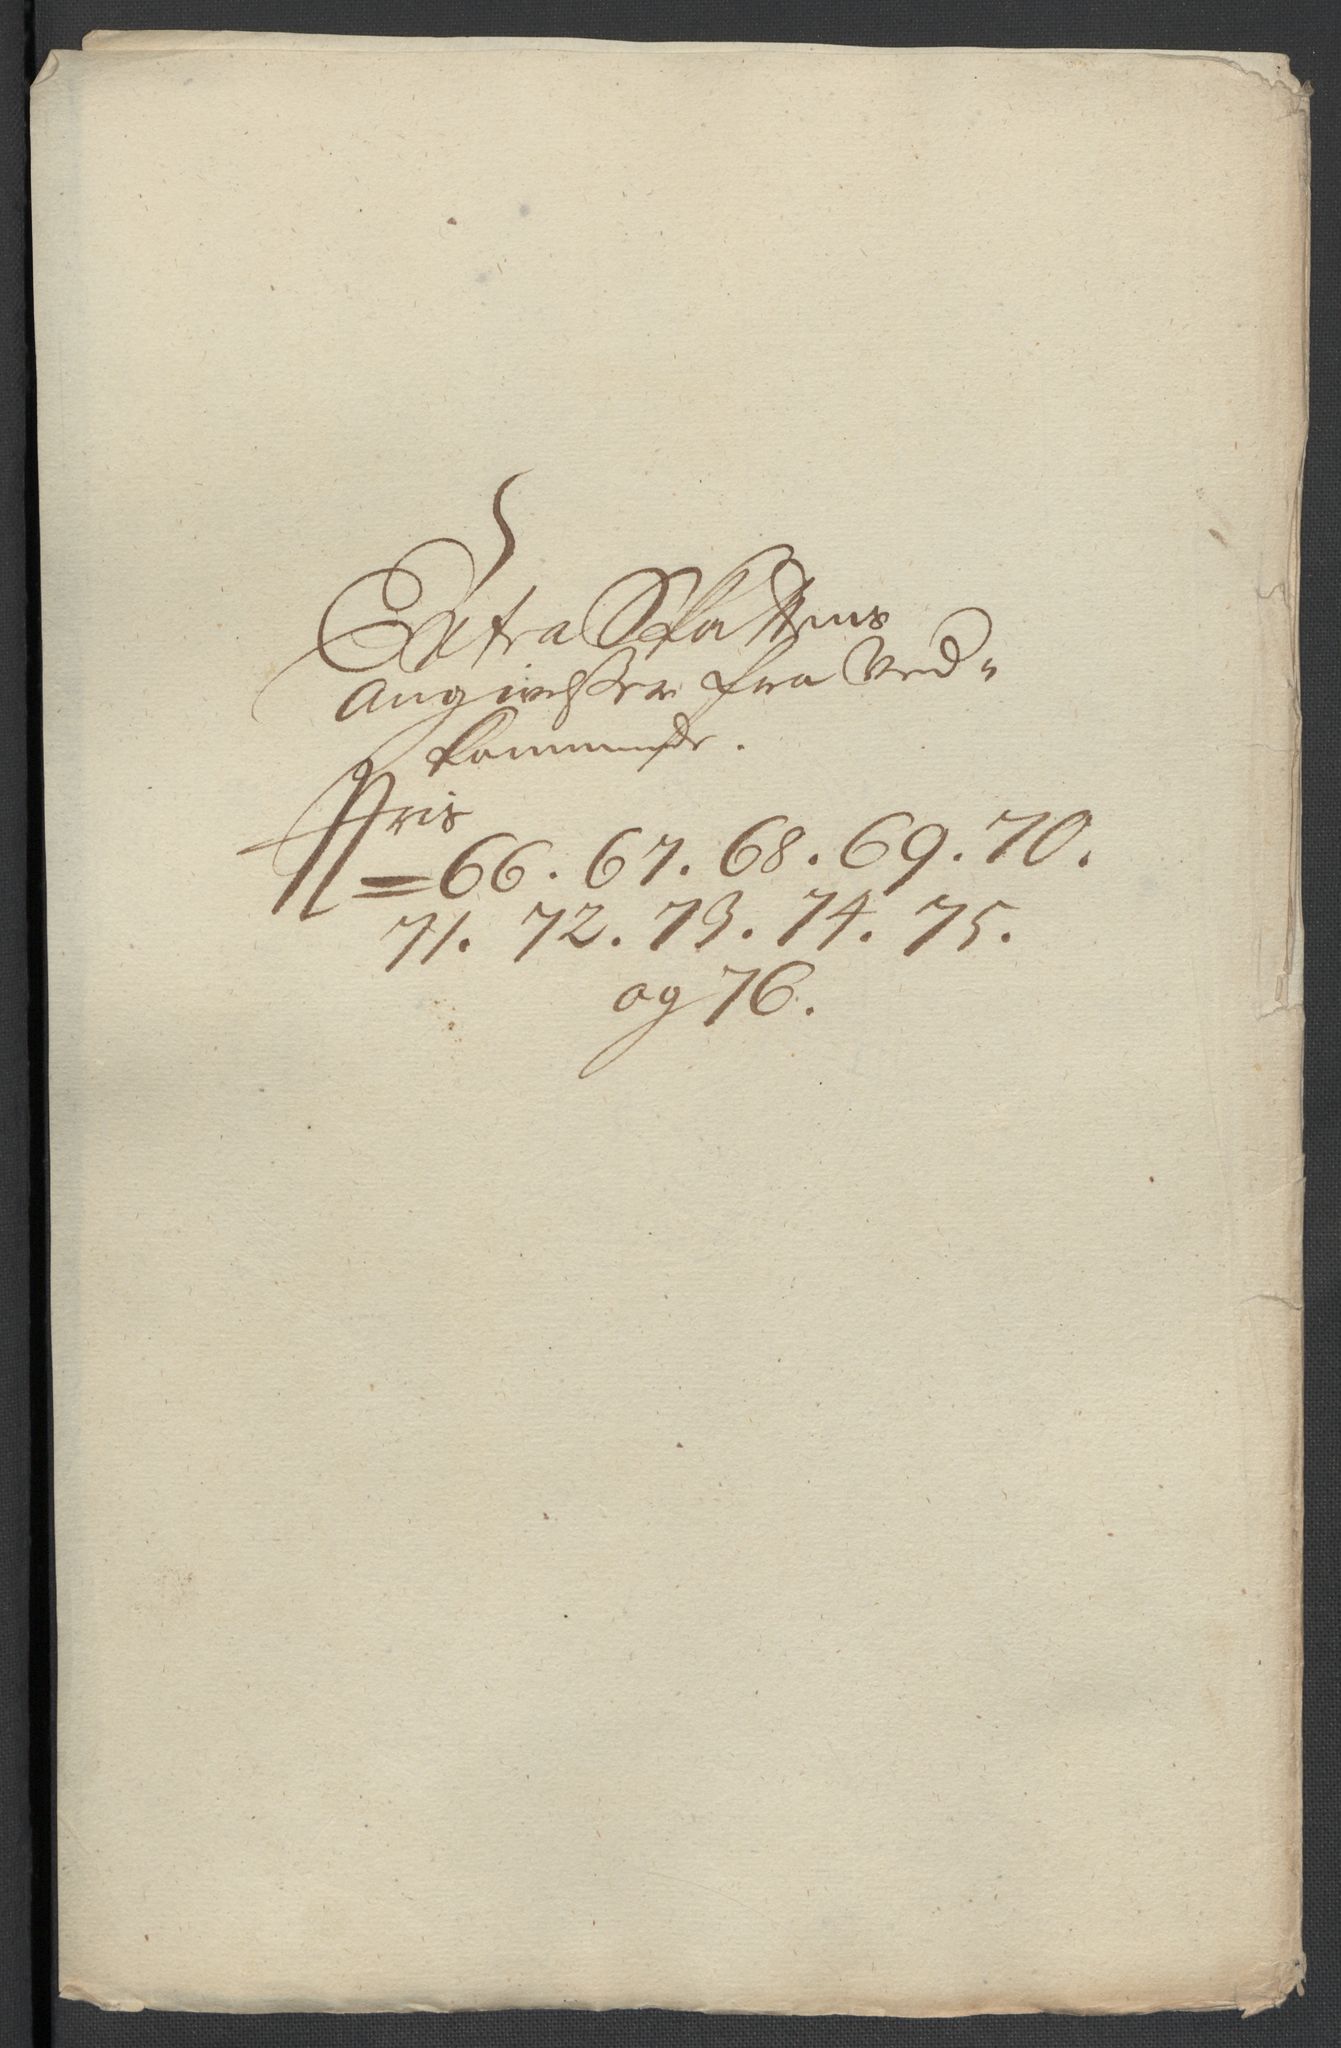 Extra Skattens
Angivelsser fra Ved-
kommende.
Nris
= 66. 67. 68. 69. 70.
71. 72. 73. 74. 75.
og 76.